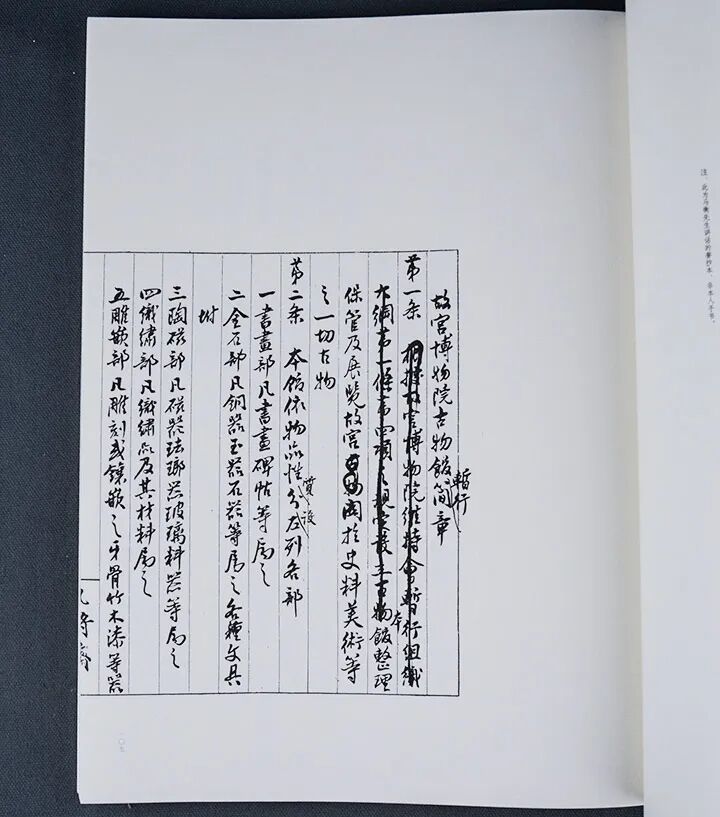 注：此为马衡先生讲话的誊抄本，非本人手书。
故宫博物院古物館暫行简章
第一条 根据故宫博物院維持會暫行組織
大綱第一條第四項之規定設立古物館本整理
保管及展覽故宫関於史料美術等
之一切古物
第二条 本館依物品性質分設左列各部
一書畫部凡書畫碑帖等属之
二金石部凡銅器玉器石器等属之各種文具
附
三陶磁部凡磁器珐瑯器玻璃料器等属之
四織繡部凡織繡品及其材料属之
五雕嵌部凡雕刻或鑲嵌之牙骨竹木漆等器
一〇七